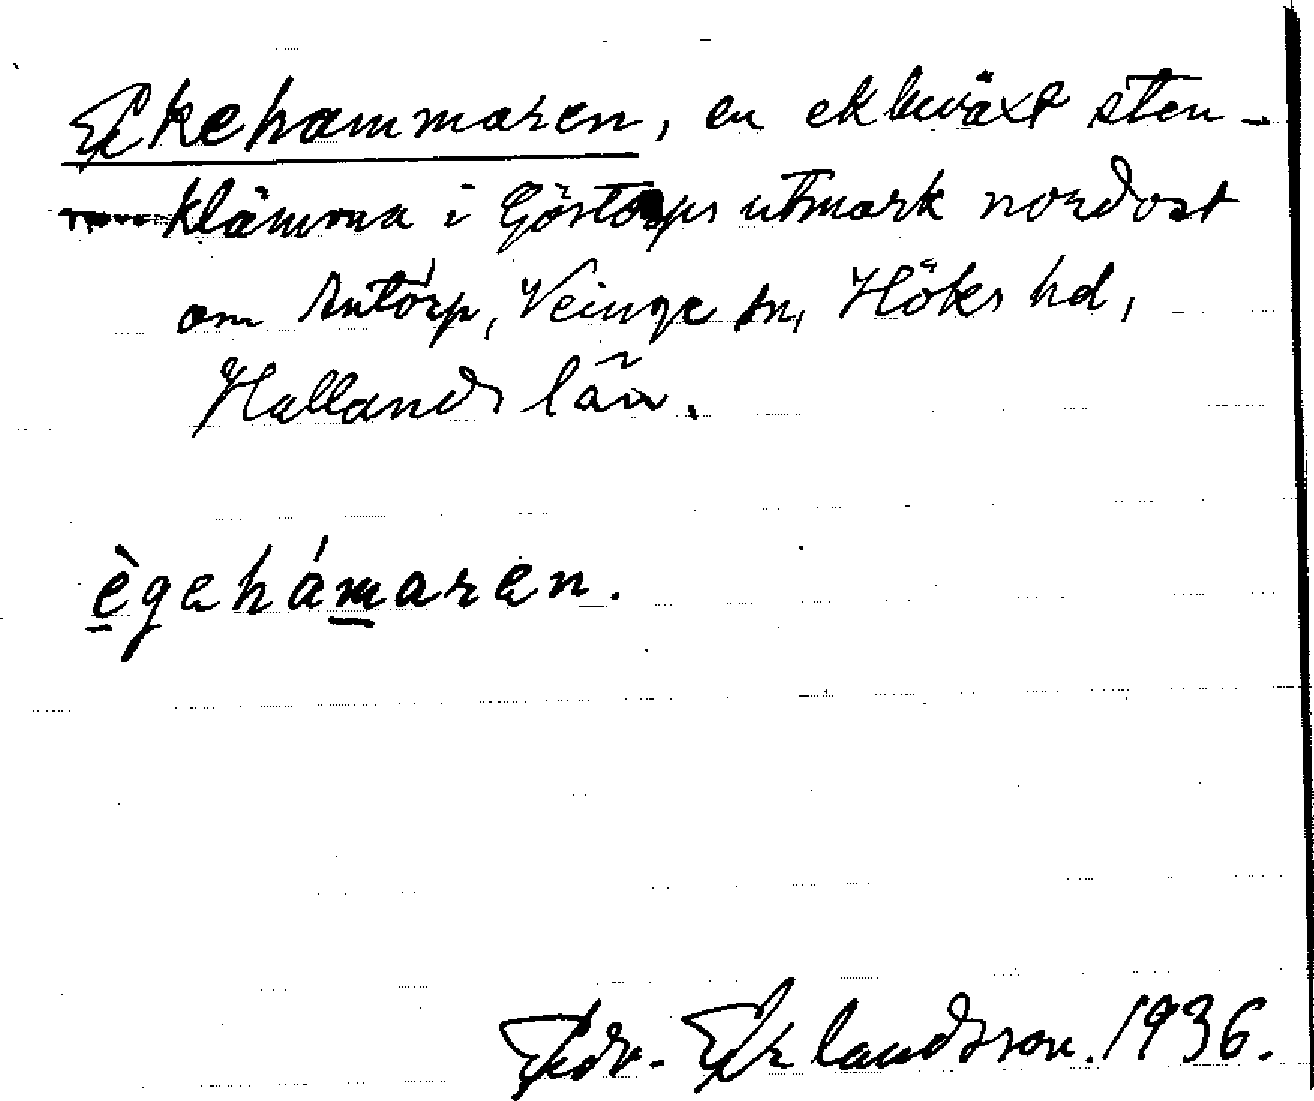 Ekehammaren, en ekbeväxt sten-
klämma i Göstorps utmark nordost
om Antorp, Veinge sn, Höks hd,
Hallands län.
ègehámaren.
Edv. Erlandsson. 1936.